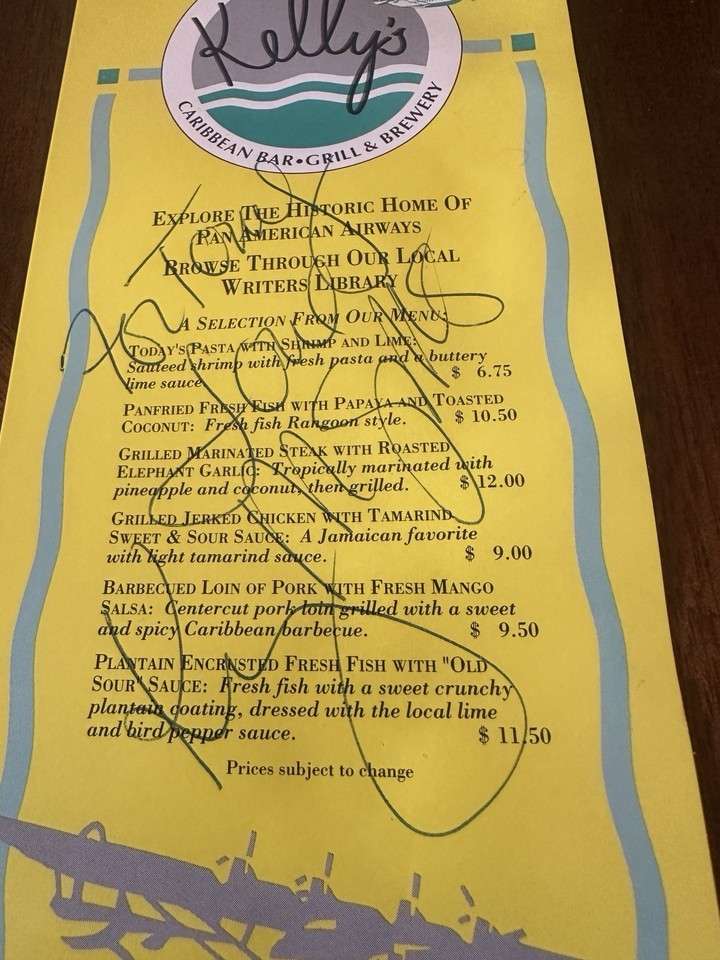 Kelly's
CARIBBEAN BAR•GRILL & BREWERY
EXPLORE THE HISTORIC HOME OF
PAN AMERICAN AIRWAYS
BROWSE THROUGH OUR LOCAL
WRITERS LIBRARY
A SELECTION FROM OUR MENU:
TODAY'S PASTA WITH SHRIMP AND LIME:
Sauteed shrimp with fresh pasta and a buttery
lime sauce $ 6.75
PANFRIED FRESH FISH WITH PAPAYA AND TOASTED
COCONUT: Fresh fish Rangoon style. $ 10.50
GRILLED MARINATED STEAK WITH ROASTED
ELEPHANT GARLIC: Tropically marinated with
pineapple and coconut, then grilled. $ 12.00
GRILLED JERKED CHICKEN WITH TAMARIND
SWEET & SOUR SAUCE: A Jamaican favorite
with light tamarind sauce. $ 9.00
BARBECUED LOIN OF PORK WITH FRESH MANGO
SALSA: Centercut pork loin grilled with a sweet
and spicy Caribbean barbecue. $ 9.50
PLANTAIN ENCRUSTED FRESH FISH WITH "OLD
SOUR" SAUCE: Fresh fish with a sweet crunchy
plantain coating, dressed with the local lime
and bird pepper sauce. $ 11.50
Prices subject to change
For